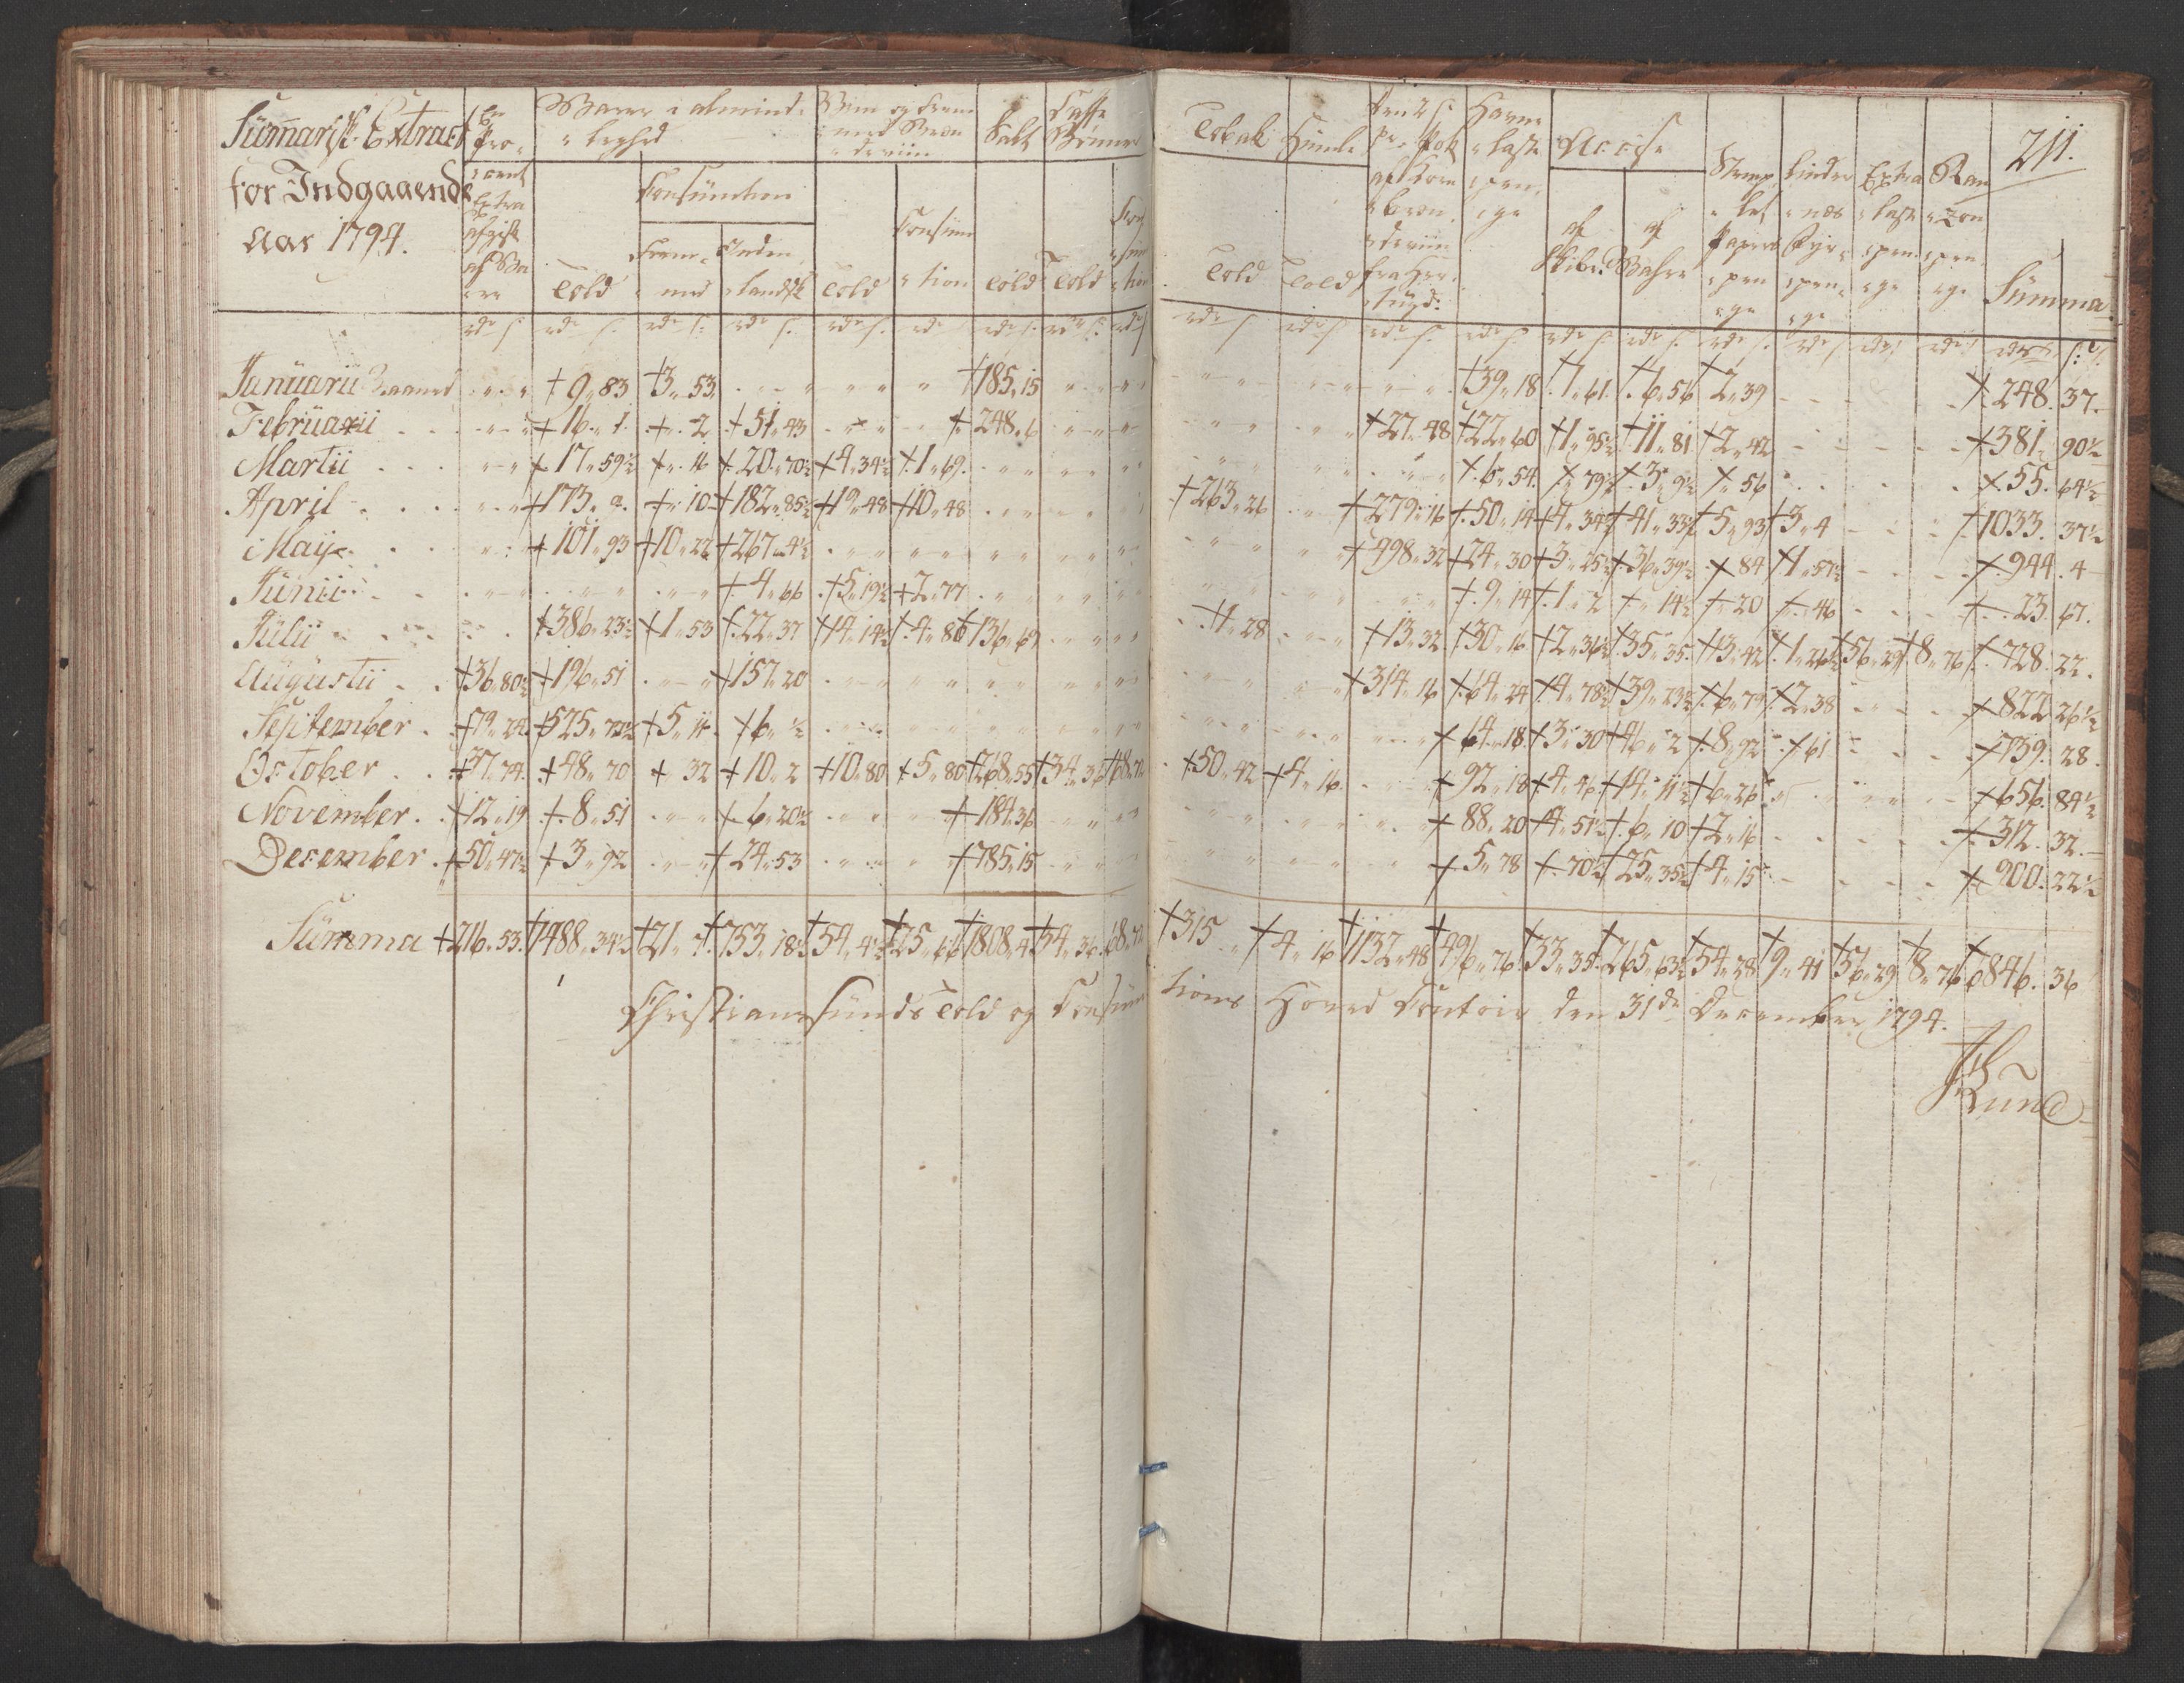 Summarisk Extract
for Indgaaende
Aar 1794.
En
Pro-
cent
Extra
afgift
af Va
re
Varer i almind-
lighed
Told
Consumtion
Frem-
med
Inden-
landsk
Viin og frem
med Bræn
deviin
Told
Consum
tion
Salt
Told
Caffe
Bönner
Told
Con
sum
tion
Tobak
Told
Humle
Told
Den 2 s:
pr. Pot
af Korn
bræn
deviin
fra Her
tugd:
Havne
laste
pen
ge
Accise
af
Skibe
af
Vahre
Stemp
let
Papiers
pen
ge
Lindes
næs
Fyr
pen
ge
Extra
laste
pen
ge
Ran
zon
pen
ge
Summa
211.
Januarii Maaned † 9 „ 83 † 3 „ 53 † 185 „ 15 † 39 „ 18 † 1 „ 61 † 6 „ 56 † 2 „ 39 † 248. 37.
Februarii † 16 „ 1 † „ 2 † 51 „ 43 † 248 „ 6 † 27 „ 48 † 22 „ 60 † 1 „ 95½ † 11 „ 81 † 2 „ 42 † 381. 90½
Martii † 17 „ 59½ † „ 16 † 20 „ 70½ † 4 „ 34½ † 1 „ 69 † 6 „ 54 † „ 79½ † 3 „ 9½ † „ 56 † 55. 64½
April † 173 „ 2 † „ 10 † 182 „ 85½ † 19 „ 48 † 10 „ 48 † 263 „ 26 † 279 „ 16 † 50 „ 14 † 4 „ 34½ † 41 „ 33½ † 5 „ 93 † 3 „ 4 † 1033. 37½
Maij † 101 „ 93 † 10 „ 22 † 267 „ 4½ † 498 „ 32 † 24 „ 30 † 3 „ 25½ † 36 „ 39½ † „ 84 † 1 „ 57½ † 944. 4
Junii † 4 „ 66 † 5 „ 19½ † 2 „ 77 † 9 „ 14 † 1 „ 2 † „ 14½ † „ 20 † „ 46 † 23. 67.
Julii † 386 „ 23½ † 1 „ 53 † 22 „ 37 † 14 „ 14½ † 4 „ 86 † 136 „ 69 † 1 „ 28 † 13 „ 32 † 30 „ 16 † 2 „ 36½ † 35 „ 35 † 13 „ 42 † 1 „ 26½ † 56 „ 29 † 8 „ 76 † 728. 22.
Augustii † 36 „ 80½ † 196 „ 51 † 157 „ 20 † 314 „ 16 † 64 „ 24 † 4 „ 78½ † 39 „ 23½ † 6 „ 79 † 2 „ 38 † 822 26½
September † 79 „ 24 † 525 „ 73½ † 5 „ 11 † 6 „ ½ † 64 „ 18 † 3 „ 30 † 46 „ 2 † 8 „ 92 † „ 61 † 739. 28.
October † 37 „ 74 † 48 „ 70 † 32 † 10 „ 2 † 10 „ 80 † 5 „ 80 † 268 „ 55 † 34 „ 36 † 68 „ 72 † 50 „ 42 † 4 „ 16 † 92 „ 18 † 4 „ 46 † 14 „ 11½ † 6 „ 26 † 656. 84½
November † 12 „ 19 † 8 „ 51 † 6 „ 20½ † 184 „ 36 † 88 „ 20 † 4 „ 51½ † 6 „ 10 † 2 „ 16 † 312. 32.
December † 50 „ 47½ † 3 „ 92 † 24 „ 53 † 785 „ 15 † 5 „ 78 † „ 70½ † 25 „ 35½ † 4 „ 15 † 900. 22½
Summa † 216 „ 53 † 1488 „ 34½ † 21 „ 7 † 753 „ 18½ † 54 „ 4½ † 25 „ 66 † 1808 „ 4 † 34 „ 36 68 „ 72 † 315 „ † 4 „ 16 † 1132 „ 48 † 496 „ 76 † 33 „ 35 † 265 „ 63½ † 54 „ 28 † 9 „ 41 † 56 „ 29 † 8 „ 76 † 6846. 36
Christiansunds Told og Consumtions Hoved Contoir den 31de December 1794.
Lund